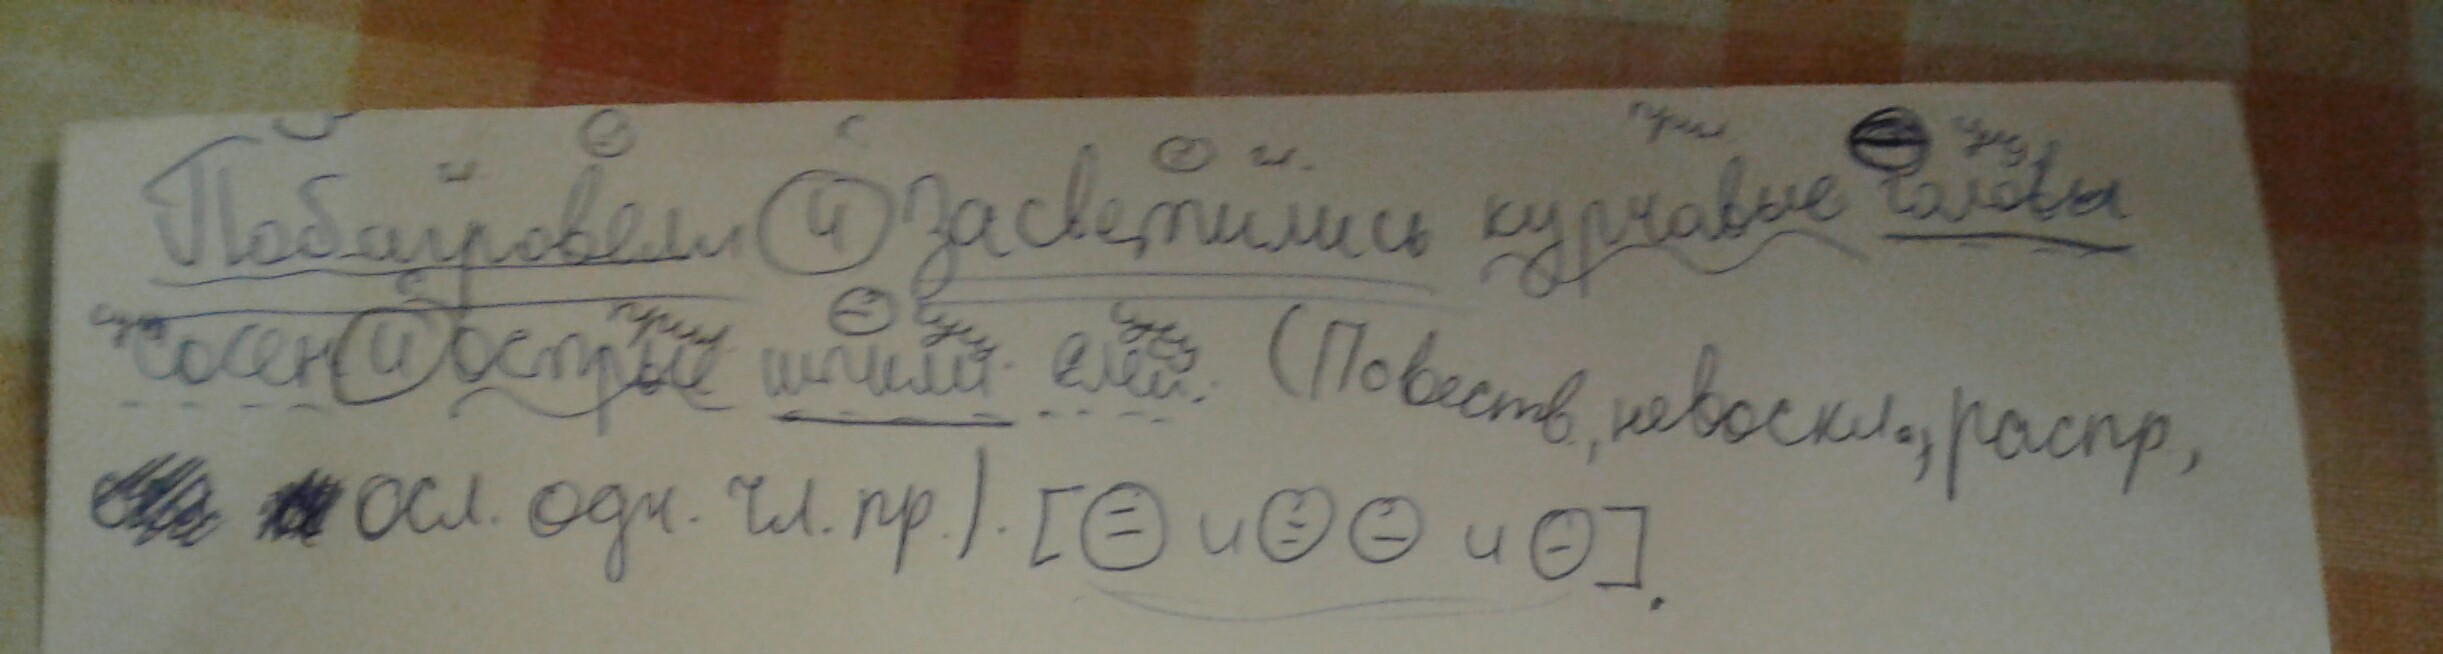 Побагровели и засветились курчавые головы
сосен и острые шпили елей. (Повеств, невоскл., распр,
осл. одн. чл. пр.). [= и = - и -].